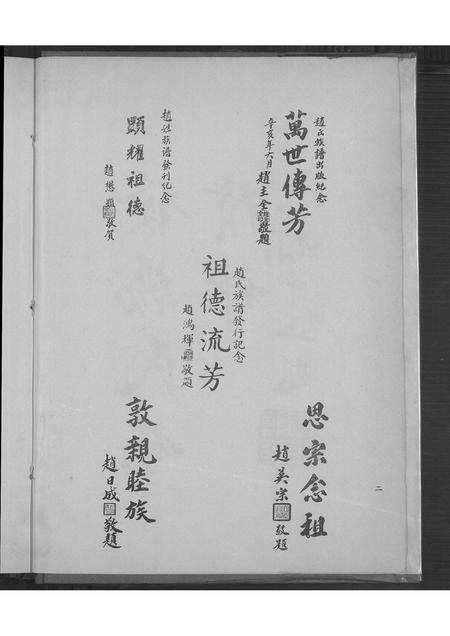 趙氏族譜出版紀念
萬世傳芳
辛亥年六月 趙主全敬題
趙姓族譜發刊紀念
顯耀祖德
趙懋 敬賀
趙氏族譜發行記念
祖德流芳
趙鴻輝敬題
思宗念祖
趙美宗敬題
敦親睦族
趙日成敬題
二